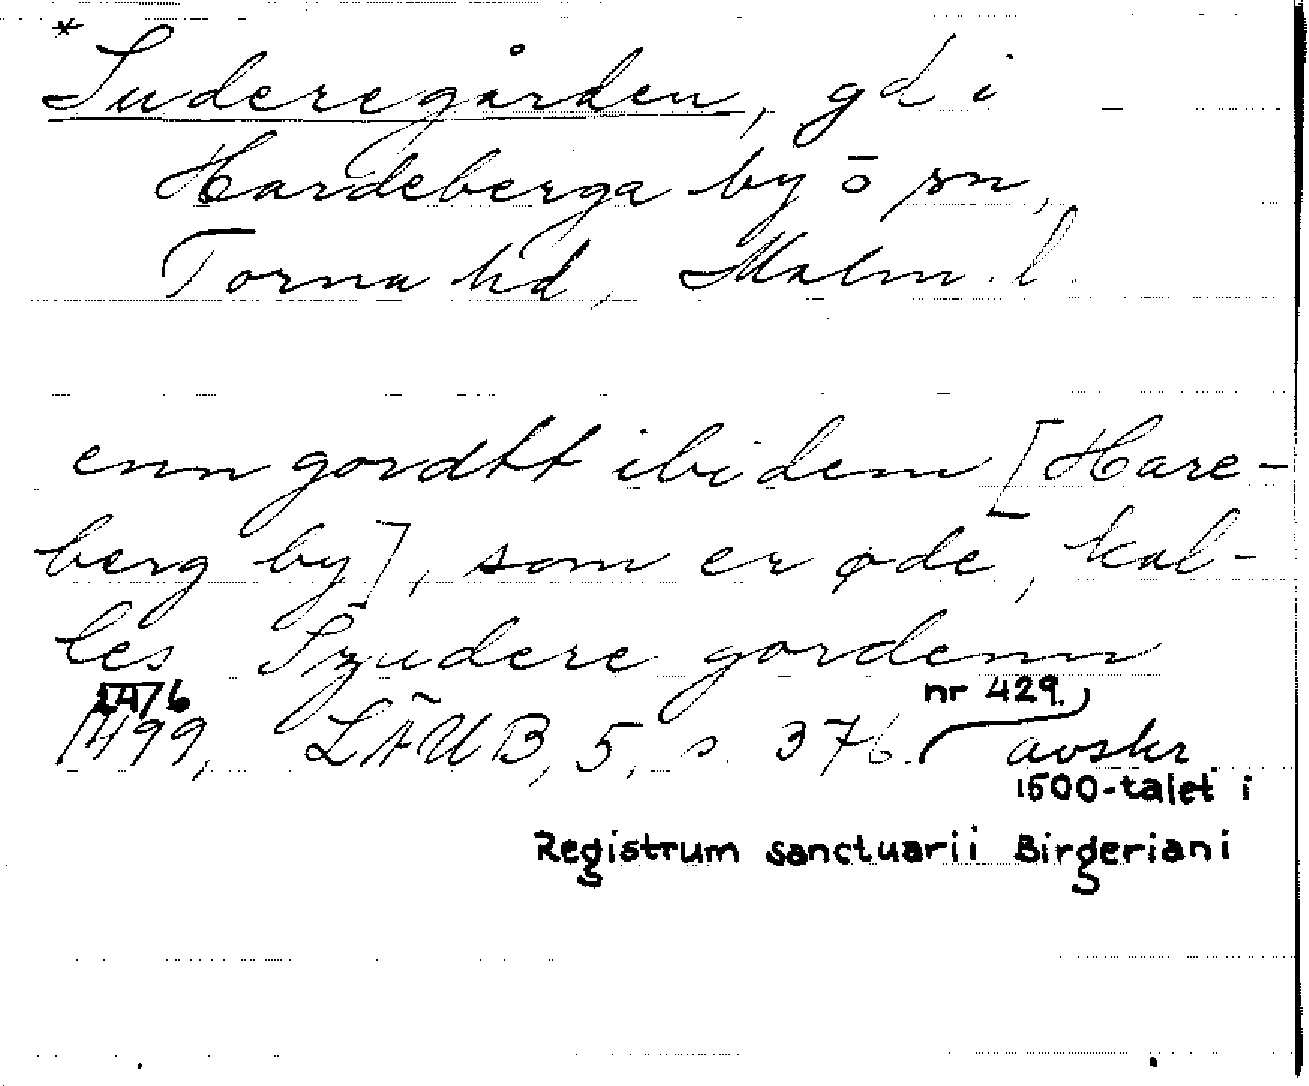 *Suderegården, gd i
Hardeberga by ō sn,
Torna hd, Malm. l.
enn gordtt ibidem [Hare-
berg by], som er øde, kal-
les Szudere gordenn
1476 nr 429.
1499, LÄUB, 5, s. 376. avskr
1500-talet i
Registrum sanctuarii Birgeriani